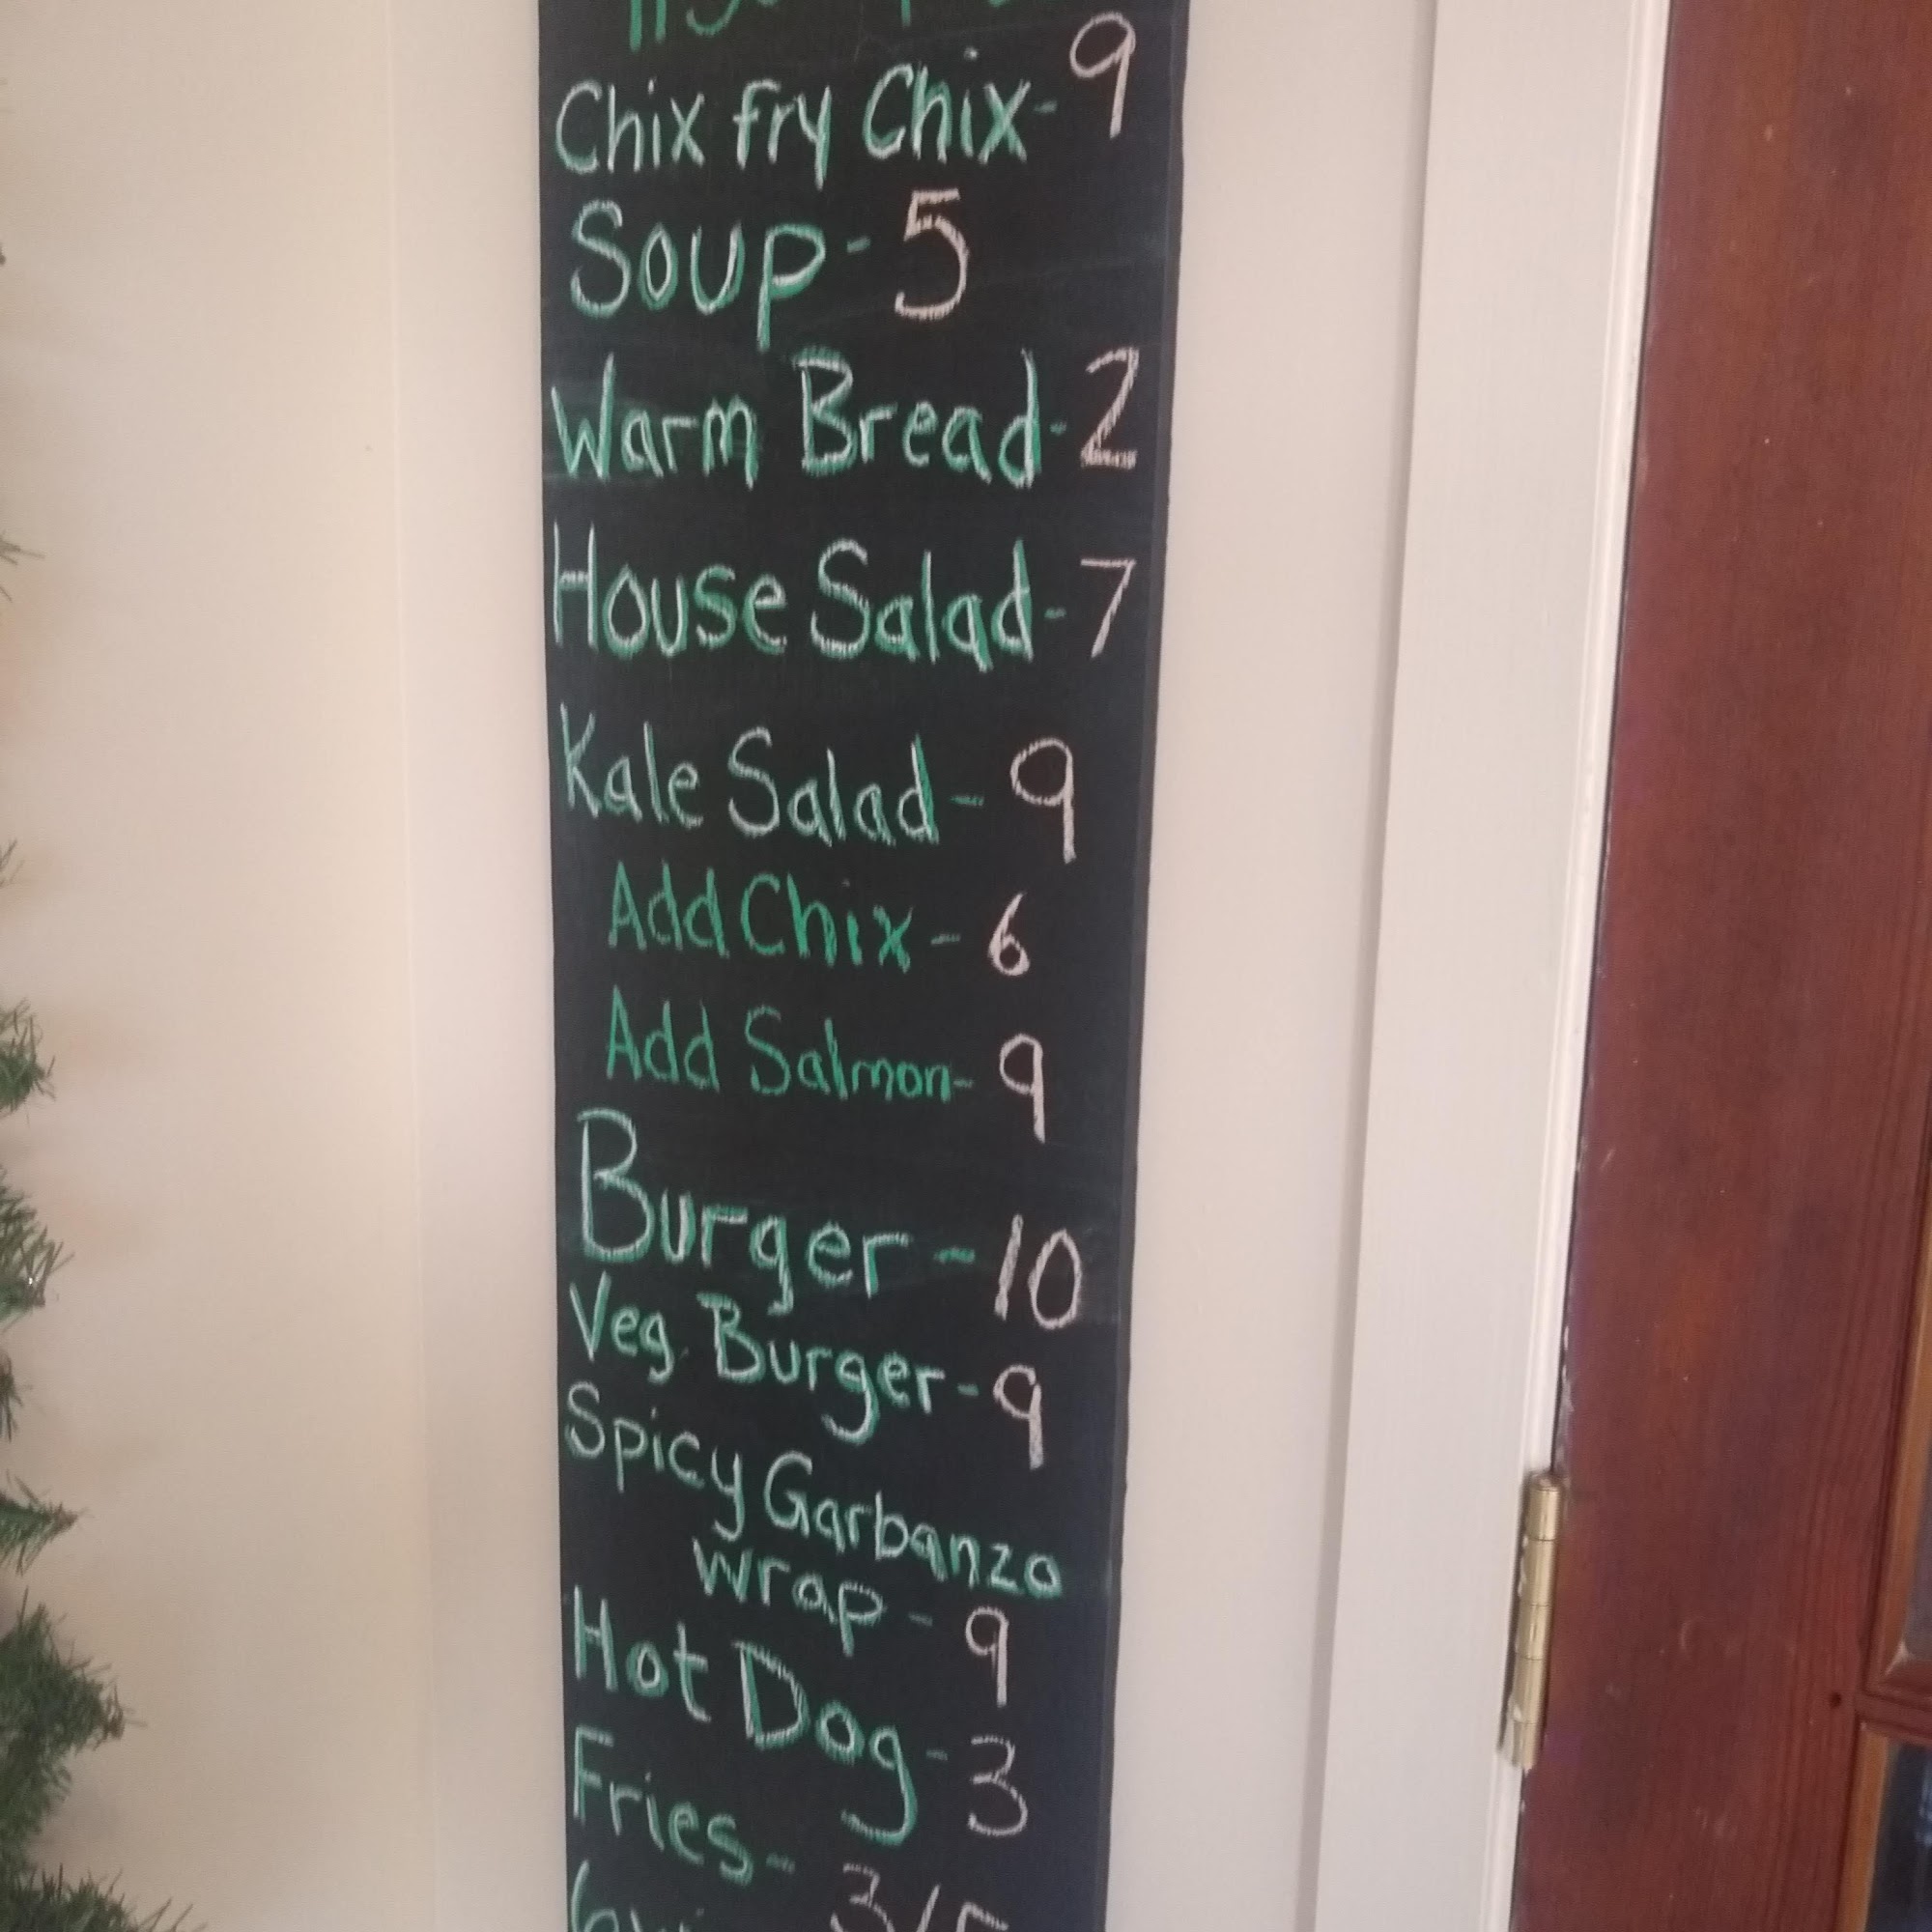 Chix fry Chix- 9
Soup- 5
Warm Bread- 2
House Salad- 7
Kale Salad- 9
Add Chix- 6
Add Salmon- 9
Burger- 10
Veg Burger- 9
Spicy Garbanzo
wrap- 9
Hot Dog- 3
Fries- 3/5